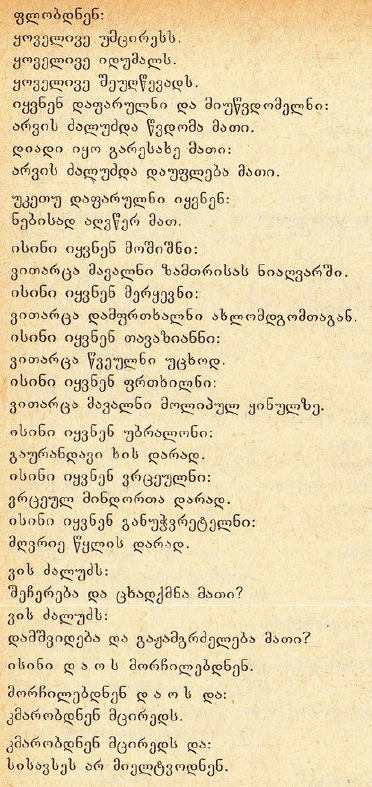 ფლობდნენ:
ყოველივე უმცირესს.
ყოველივე იდუმალს.
ყოველივე შეუღწევადს.
იყვნენ დაფარულნი და მიუწვდომელნი:
არვის ძალუძდა წვდომა მათი.
დიადი იყო გარესახე მათი:
არვის ძალუძდა დაუფლება მათი.
უკეთუ დაფარულნი იყვნენ:
ნებისად აღვწერ მათ.
ისინი იყვნენ მოშიშნი:
ვითარცა მავალნი ზამთრისას ნიაღვარში.
ისინი იყვნენ მერყევნი:
ვითარცა დამფრთხალნი ახლომდგომთაგან.
ისინი იყვნენ თავაზიანნი:
ვითარცა წვეულნი უცხოდ.
ისინი იყვნენ ფრთხილნი:
ვითარცა მავალნი მოლიპულ ყინულზე.
ისინი იყვნენ უბრალონი:
გაურანდავი ხის დარად.
ისინი იყვნენ ვრცეულნი:
ვრცეულ მინდორთა დარად.
ისინი იყვნენ განუჭვრეტელნი:
მღვრიე წყლის დარად.
ვის ძალუძს:
შეჩერება და ცხადქმნა მათი?
ვის ძალუძს:
დამშვიდება და გაჟამგრძელება მათი?
ისინი დ ა ო ს მორჩილებდნენ.
მორჩილებდნენ დ ა ო ს და:
კმარობდნენ მცირედს.
კმარობდნენ მცირედს და:
სისავსეს არ მიელტვოდნენ.